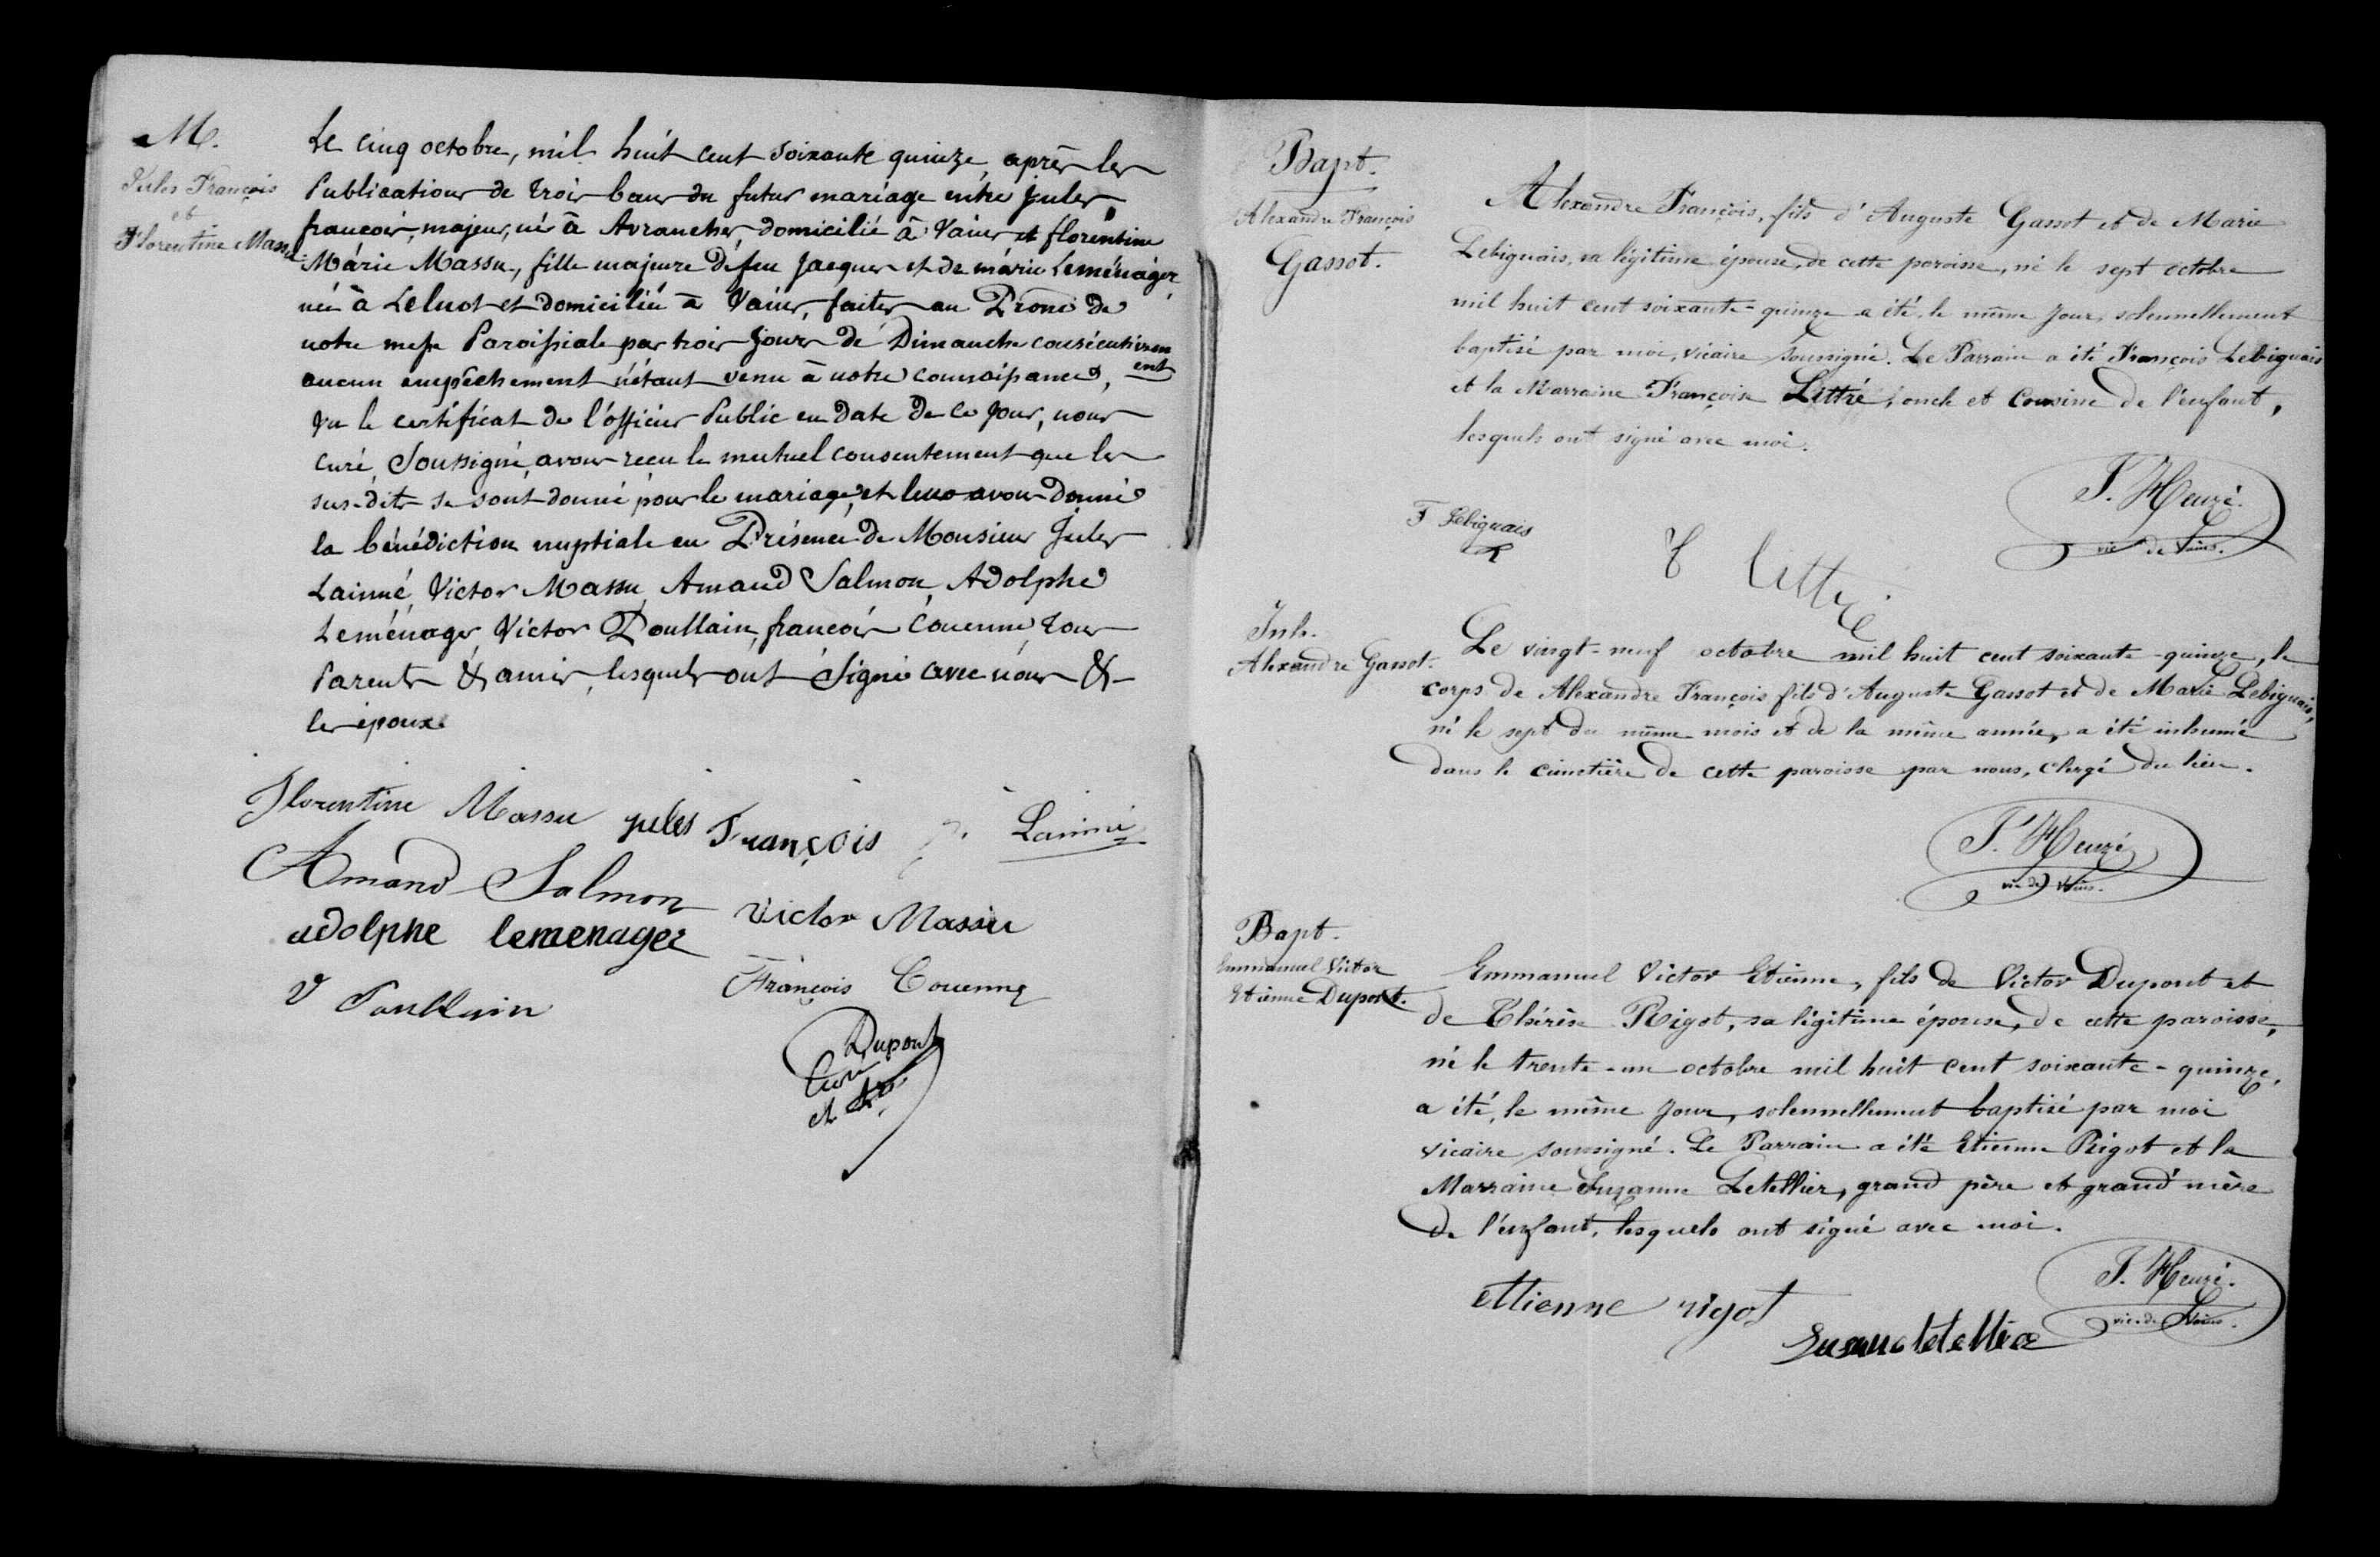 M.
Jules François
et
Florentine Massu
Le cinq octobre, mil huit cent soixante quinze, après les
Publications de trois bans du futur mariage entre Jules,
françois, majeur, né à Avranches, domicilié à Vains, et florentine
Márie Massu, fille majeure de feu Jacques et de márie Leménager,
née à Leluot et domiciliée à Vains, faites au Prone de
notre messe Paroissiale par trois jours de Dimanche consécutivem
ent
aucun empêchement n'étant venu à notre connaissance,
Vu le certificat de l'officier Public en date de ce jour, nous
curé, Soussigné, avons reçu le mutuel consentement que les
sus-dits se sont donné pour le mariage, et leur avons donné
la bénédiction nuptiale en Présence de Monsieur Jules
Lainné, Victor Massu, Amand Salmon, Adolphe
Leménager, Victor Poullain, françois Couenne, tous
Parents & amis, lesquels ont signé avec nous &
les époux.
Florentine Massu jules François J. Lainné
Amand Salmon Victor Massu
adolphe lemenager
François Couenne
V Poullain
Dupont
Curé
Bapt.
Alexandre François
Gassot.
Alexandre François, fils d'Auguste Gassot et de Marie
Lebiguais, sa légitime épouse, de cette paroisse, né le sept octobre
mil huit cent soixante-quinze a été, le même jour, solennellement
baptisé par moi, vicaire soussigné. Le Parrain a été François Lebiguais
et la Marraine Françoise Littré, oncle et Cousine de l'enfant,
lesquels ont signé avec moi.
F Lebiguais
F Littré
P. Heuzé.
vic de Vains.
Inh.
Alexandre Gassot.
Le vingt-neuf octobre mil huit cent soixante-quinze, le
corps de Alexandre François fils d'Auguste Gassot et de Marie Lebiguais,
né le sept du même mois et de la même année, a été inhumé
dans le cimetière de cette paroisse par nous, clergé du lieu.
P. Heuzé
vic de Vains.
Bapt.
Emmanuel Victor
Etienne Dupont.
Emmanuel Victor Etienne, fils de Victor Dupont et
de Thérèse Rigot, sa légitime épouse, de cette paroisse,
né le trente-un octobre mil huit cent soixante-quinze,
a été, le même jour, solennellement baptisé par moi
vicaire soussigné. Le Parrain a été Etienne Rigot et la
Marraine Suzanne Letellier, grand père et grand'mère
de l'enfant, lesquels ont signé avec moi.
P. Heuzé.
vic. de Vains.
ettienne rigot
Susanne letellier